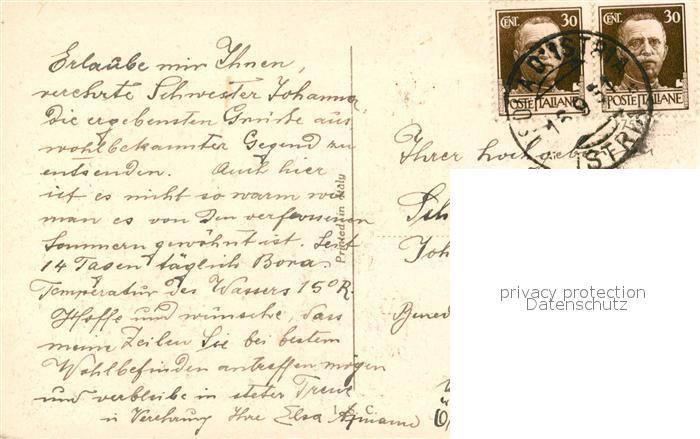 CENT. 30 CENT. 30
POSTE ITALIANE POSTE ITALIANE
D'ISTRIA
Erlaube mir Ihnen,
verehrte Schwester Johanna,
die ergebensten Grüsse aus
wohlbekannter Gegend zu
entsenden. Auch hier
ist es nicht so warm wie
man es von den verflossenen
Sommern gewöhnt ist. Seit
14 Tagen täglich Bora.
Temperatur des Wassers 15° R.
Hoffe und wünsche, dass
meine Zeilen Sie bei bestem
Wohlbefinden antreffen mögen
und verbleibe in steter Treue
u Verehrung Ihre Elsa
Printed in Italy
Ihrer hochgeb
Sch
Joh
Bened
privacy protection
Datenschutz